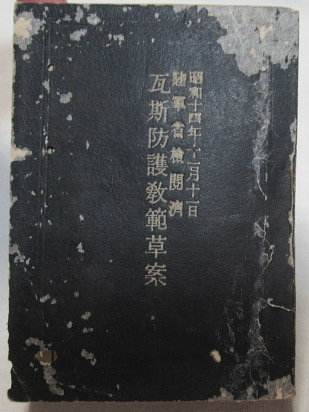 昭和十四年十二月十一日
陸軍省檢閱濟
瓦斯防護敎範草案